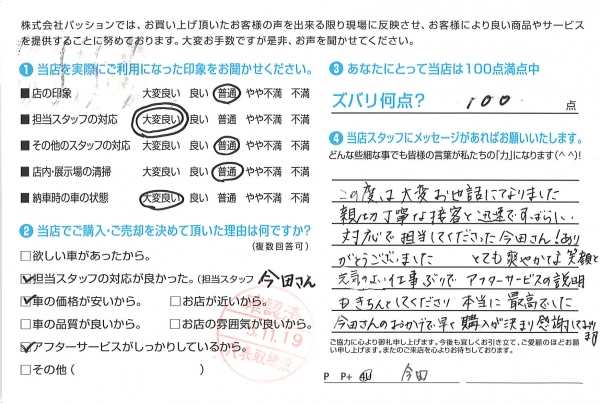 株式会社パッションでは、お買い上げ頂いたお客様の声を出来る限り現場に反映させ、お客様により良い商品やサービス
を提供することに努めております。大変お手数ですが是非、お声を聞かせてください。
❶ 当店を実際にご利用になった印象をお聞かせください。
■店の印象 大変良い 良い 普通 やや不満 不満
■担当スタッフの対応 大変良い 良い 普通 やや不満 不満
■その他のスタッフの対応 大変良い 良い 普通 やや不満 不満
■店内・展示場の清掃 大変良い 良い 普通 やや不満 不満
■納車時の車の状態 大変良い 良い 普通 やや不満 不満
❷ 当店でご購入・ご売却を決めて頂いた理由は何ですか?
(複数回答可)
□欲しい車があったから。
☑担当スタッフの対応が良かった。(担当スタッフ 今田さん
☑車の価格が安いから。 □お店が近いから。
□車の品質が良いから。 □お店の雰囲気が良いから。
☑アフターサービスがしっかりしているから。
□その他 ( )
確認済
11.19
代表取締役
❸ あなたにとって当店は100点満点中
ズバリ何点? 100 点
❹ 当店スタッフにメッセージがあればお願いいたします。
どんな些細な事でも皆様の言葉が私たちの「力」になります(^^)!
この度は大変お世話になりました
親切丁寧な接客と迅速ですばらしい
対応で担当してくださった今田さん!あり
がとうございました とても爽やかな笑顔と
元気のよい仕事ぶりで アフターサービスの説明
もきちんとしてくださり 本当に最高でした
今田さんのおかげで早く購入が決まり感謝しております
ご協力に心より御礼申し上げます。今後も宜しくお引き立て、ご愛顧のほどお願
い申し上げます。またのご来店を心よりお待ちしております。
P P+ 今田